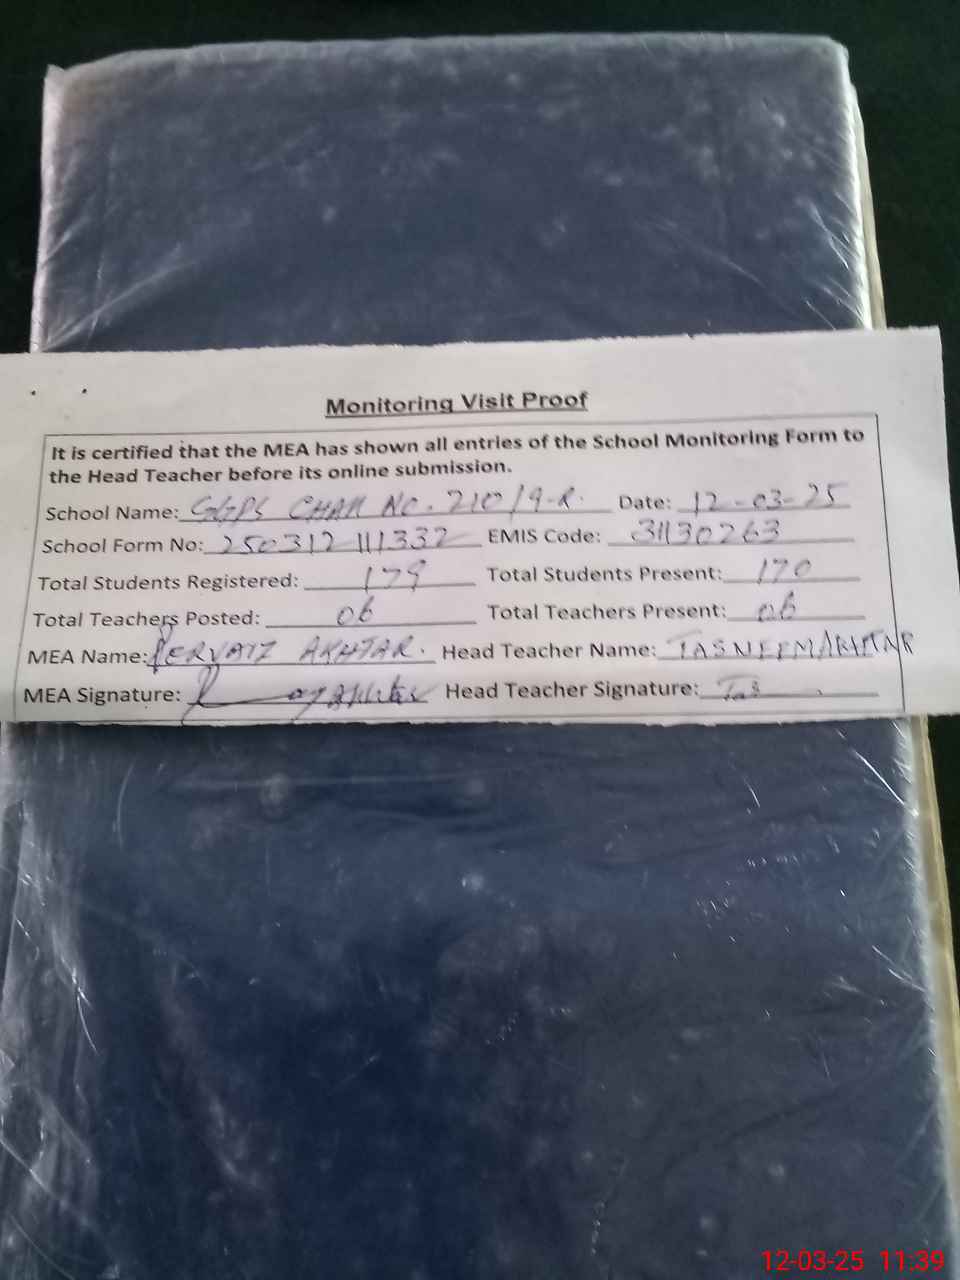 Monitoring Visit Proof
It is certified that the MEA has shown all entries of the School Monitoring Form to
the Head Teacher before its online submission.
School Name: GGPS CHAK NO. 210/9-R. Date: 12-03-25
School Form No: 250312111332 EMIS Code: 31130263
Total Students Registered: 179 Total Students Present: 170
Total Teachers Posted: 06 Total Teachers Present: 06
MEA Name: PERVAIZ AKHTAR. Head Teacher Name: TASNEEM AKHTAR
MEA Signature: Head Teacher Signature: Tas
12-03-25 11:39